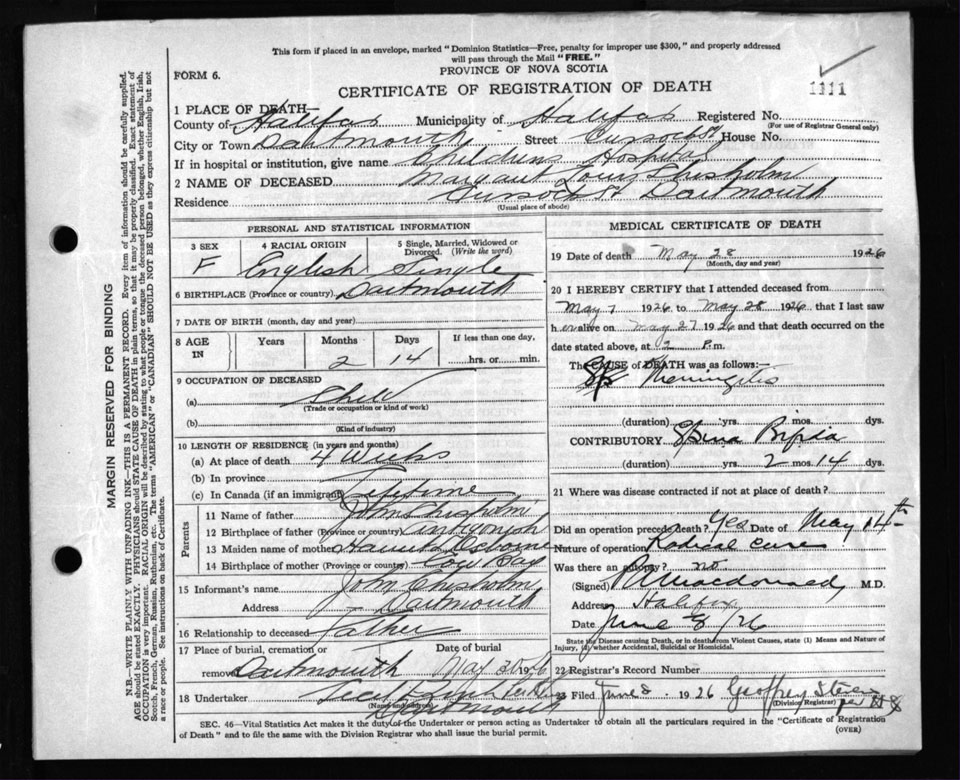 This form if placed in an envelope, marked "Dominion Statistics—Free, penalty for improper use $300," and properly addressed
will pass through the Mail "FREE."
PROVINCE OF NOVA SCOTIA
FORM 6.
CERTIFICATE OF REGISTRATION OF DEATH
1111
1 PLACE OF DEATH—
County of Halifax Municipality of Halifax Registered No.
(For use of Registrar General only)
City or Town Dartmouth Street House No.
If in hospital or institution, give name Childrens Hospital
2 NAME OF DECEASED Chisholm
Residence Dartmouth
(Usual place of abode)
PERSONAL AND STATISTICAL INFORMATION
3 SEX 4 RACIAL ORIGIN 5 Single, Married, Widowed or Divorced. (Write the word)
F English Single
6 BIRTHPLACE (Province or country) Dartmouth
7 DATE OF BIRTH (month, day and year)
8 AGE IN Years Months Days If less than one day,
2 14 hrs. or min.
9 OCCUPATION OF DECEASED
(a) Child
(Trade or occupation or kind of work)
(b)
(Kind of industry)
10 LENGTH OF RESIDENCE (in years and months)
(a) At place of death 4 Weeks
(b) In province
(c) In Canada (if an immigrant) Lifetime
Parents
11 Name of father John Chisholm
12 Birthplace of father (Province or country) Antigonish
13 Maiden name of mother Osborne
14 Birthplace of mother (Province or country) Cow Bay
15 Informant's name John Chisholm
Address Dartmouth
16 Relationship to deceased Father
17 Place of burial, cremation or removal Dartmouth Date of burial May 30 1926
18 Undertaker
(Name and address) Dartmouth
MEDICAL CERTIFICATE OF DEATH
19 Date of death May 28 1926
(Month, day and year)
20 I HEREBY CERTIFY that I attended deceased from
May 7 1926 to May 28 1926 that I last saw
her alive on May 27 1926 and that death occurred on
date stated above, at 12 P.m.
The CAUSE OF DEATH was as follows:—
Meningitis
(duration) yrs. mos. dys.
CONTRIBUTORY Spina Bifida
(duration) yrs. 2 mos. 14 dys.
21 Where was disease contracted if not at place of death?
Did an operation precede death? Yes Date of May 14th
Nature of operation Radical cure
Was there an autopsy? no
(Signed) Macdonald M.D.
Address Halifax
Date June 8/26
State the Disease causing Death, or in death from Violent Causes, state (1) Means and Nature of
Injury, (2) whether Accidental, Suicidal or Homicidal.
22 Registrar's Record Number
23 Filed June 8 1926 Geoffrey
(Division Registrar)
SEC. 46—Vital Statistics Act makes it the duty of the Undertaker or person acting as Undertaker to obtain all the particulars required in the "Certificate of Registration
of Death" and to file the same with the Division Registrar who shall issue the burial permit.
(OVER)
MARGIN RESERVED FOR BINDING
N.B.—WRITE PLAINLY WITH UNFADING INK—THIS IS A PERMANENT RECORD. Every item of information should be carefully supplied.
AGE should be stated EXACTLY. PHYSICIANS should STATE CAUSE OF DEATH in plain terms, so that it may be properly classified. Exact statement of
OCCUPATION is very important. RACIAL ORIGIN will be described by stating to what people or tongue the deceased person belonged, whether English, Irish,
Scotch, French, German, Russian, Ruthenian, etc. The terms "AMERICAN" or "CANADIAN" SHOULD NOT BE USED as they express citizenship but not
a race or people. See instructions on back of Certificate.